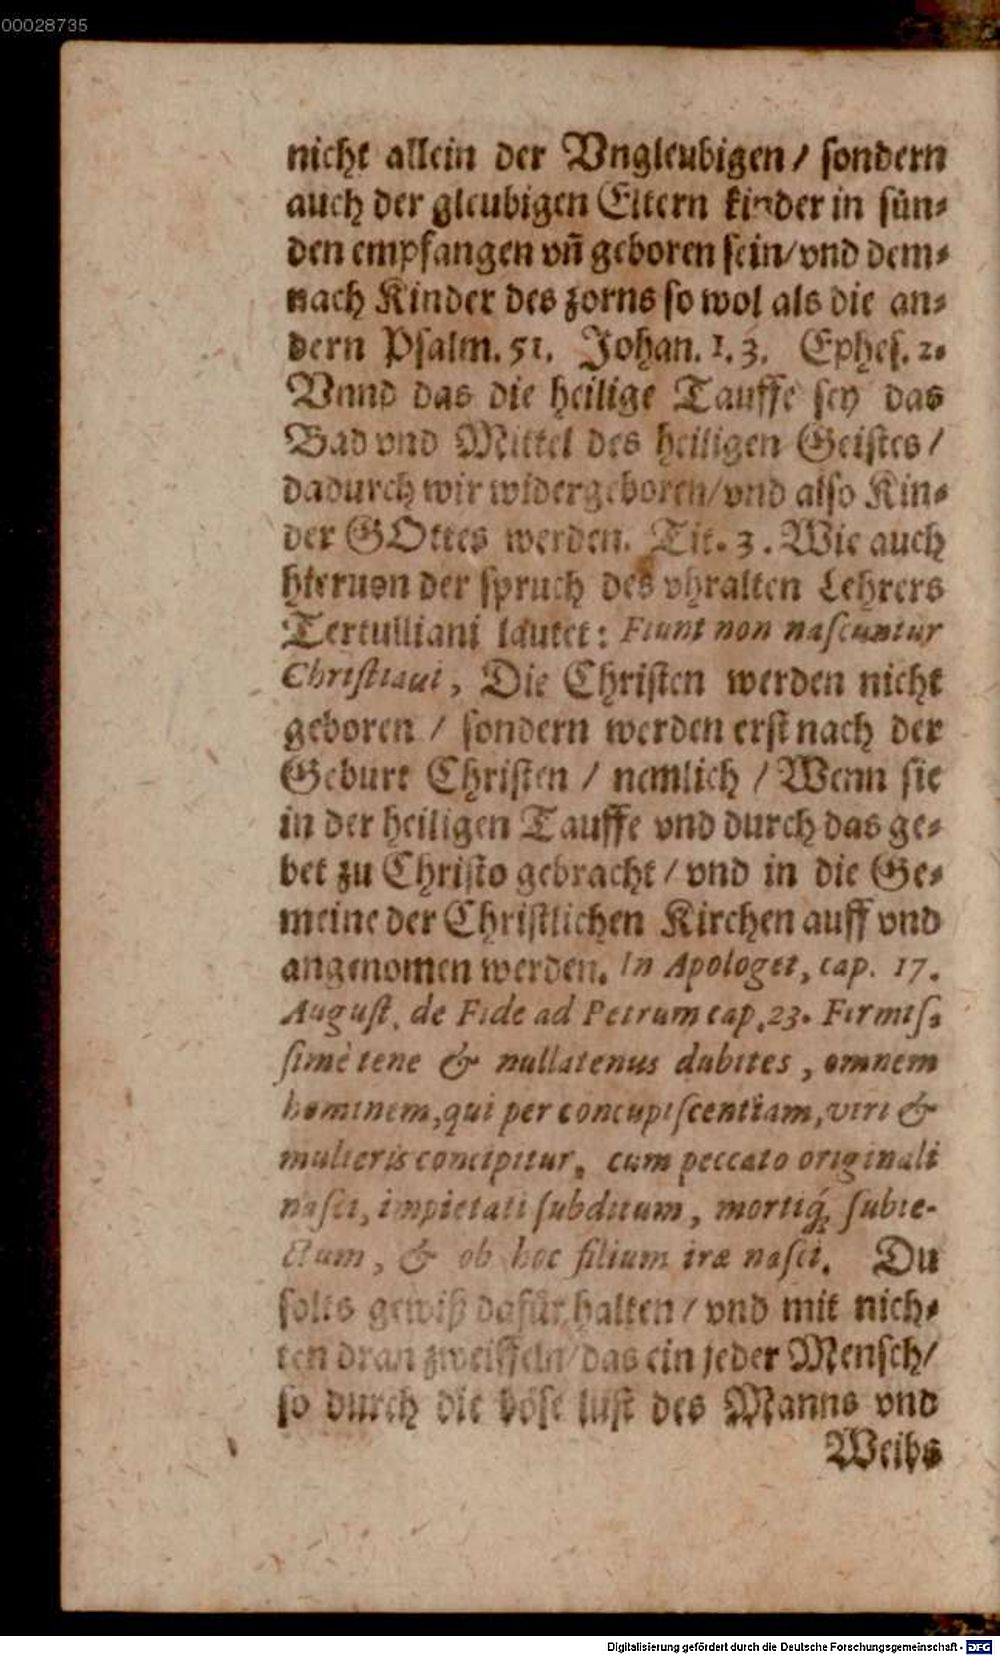 00028735
nicht allein der Vngleubigen / sondern
auch der gleubigen Eltern kinder in sün⸗
den empfangen vñ geboren sein/vnd dem⸗
nach Kinder des zorns so wol als die an⸗
dern Psalm. 51. Johan. 1. 3. Ephes. 2.
Vnnd das die heilige Tauffe sey das
Bad vnd Mittel des heiligen Geistes /
dadurch wir widergeboren/vnd also Kin⸗
der GOttes werden. Tit. 3. Wie auch
hieruon der spruch des vhralten Lehrers
Tertulliani lautet: Fiunt non nascuntur
Christiaui, Die Christen werden nicht
geboren / sondern werden erst nach der
Geburt Christen / nemlich / Wenn sie
in der heiligen Tauffe vnd durch das ge⸗
bet zu Christo gebracht / vnd in die Ge⸗
meine der Christlichen Kirchen auff vnd
angenomen werden. In Apologet, cap. 17.
August. de Fide ad Petrum cap. 23. Firmis⸗
simè tene & nullatenus dubites, omnem
hominem, qui per concupiscentiam, viri &
mulieris concipitur, cum peccato originali
nasci, impietati subditum, mortiq́; subie-
ctum, & ob hoc filium iræ nasci. Du
solts gewiß dafür halten / vnd mit nich⸗
ten dran zweiffeln/das ein jeder Mensch/
so durch die böse lust des Manns vnd
Weibs
Digitalisierung gefördert durch die Deutsche Forschungsgemeinschaft - DFG